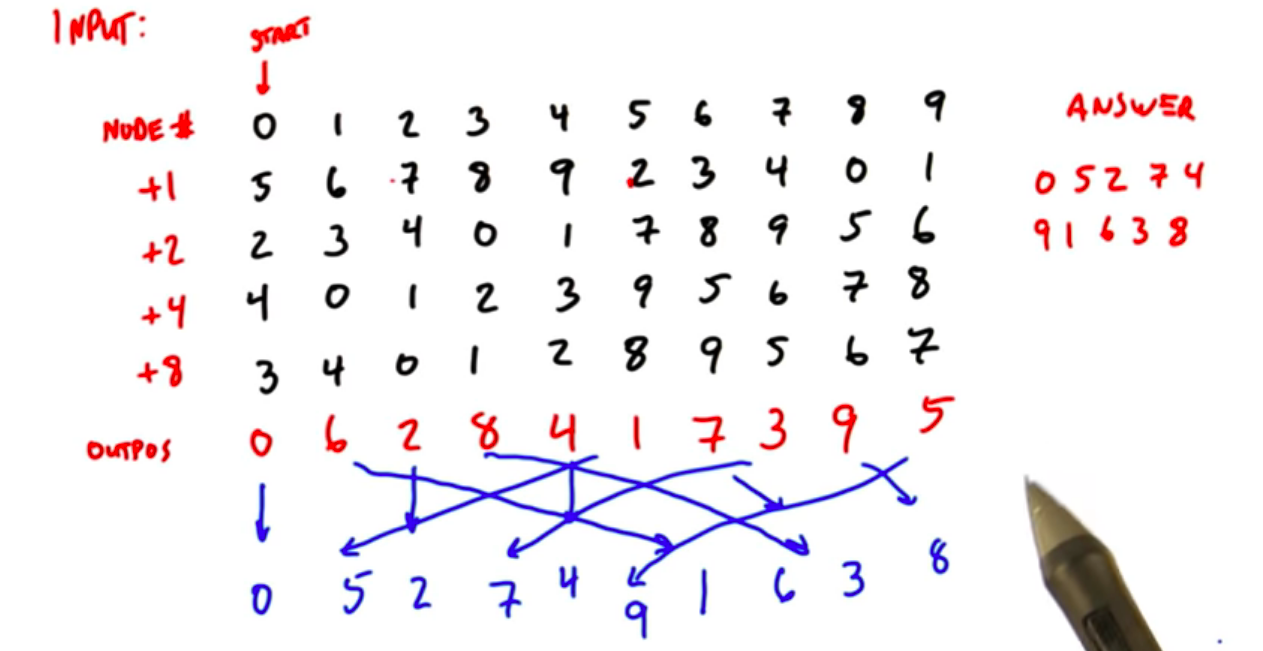 INPUT:
START
NODE # 0 1 2 3 4 5 6 7 8 9
+1 5 6 7 8 9 2 3 4 0 1
+2 2 3 4 0 1 7 8 9 5 6
+4 4 0 1 2 3 9 5 6 7 8
+8 3 4 0 1 2 8 9 5 6 7
OUTPOS 0 6 2 8 4 1 7 3 9 5
0 5 2 7 4 9 1 6 3 8
ANSWER
0 5 2 7 4
9 1 6 3 8